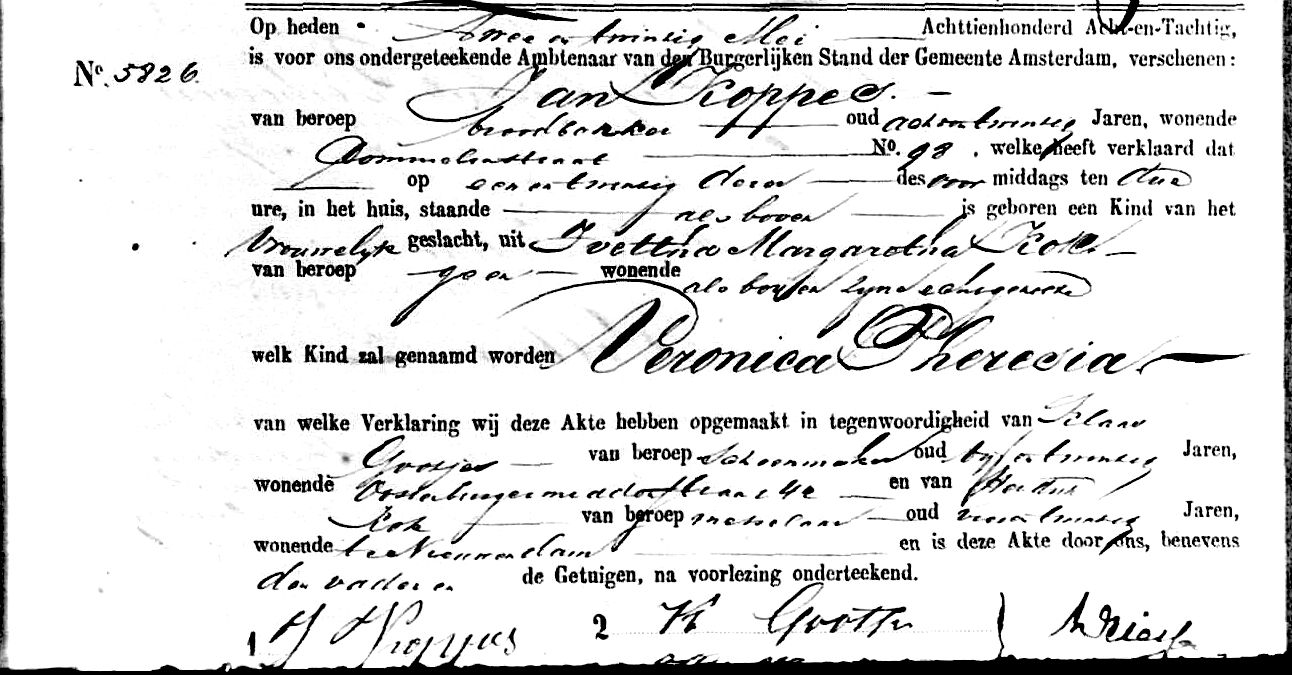 Op heden Twee en twintig Mei Achttienhonderd Acht-en-Tachtig,
is voor ons ondergeteekende Ambtenaar van den Burgerlijken Stand der Gemeente Amsterdam, verschenen:
No. 5826.
Jan Koppes.
van beroep broodbakker oud achtentwintig Jaren, wonende
Dommelenstraat No. 98, welke heeft verklaard dat
op eenentwintig dezer des voor middags ten drie
ure, in het huis, staande als boven is geboren een Kind van het
Vrouwelijk geslacht, uit Ivettha Margaretha Kok
van beroep geen wonende als boven zijne echtgenoote
welk Kind zal genaamd worden Veronica Theresia.
van welke Verklaring wij deze Akte hebben opgemaakt in tegenwoordigheid van Klaas
Gootjes van beroep schoenmaker oud vijfentwintig Jaren,
wonende Oostenburgermiddenstraat 42 en van
Kok van beroep metselaar oud vierentwintig Jaren,
wonende te Nieuwendam en is deze Akte door ons, benevens
den vader en de Getuigen, na voorlezing onderteekend.
1 J Koppes 2 K Gootjes